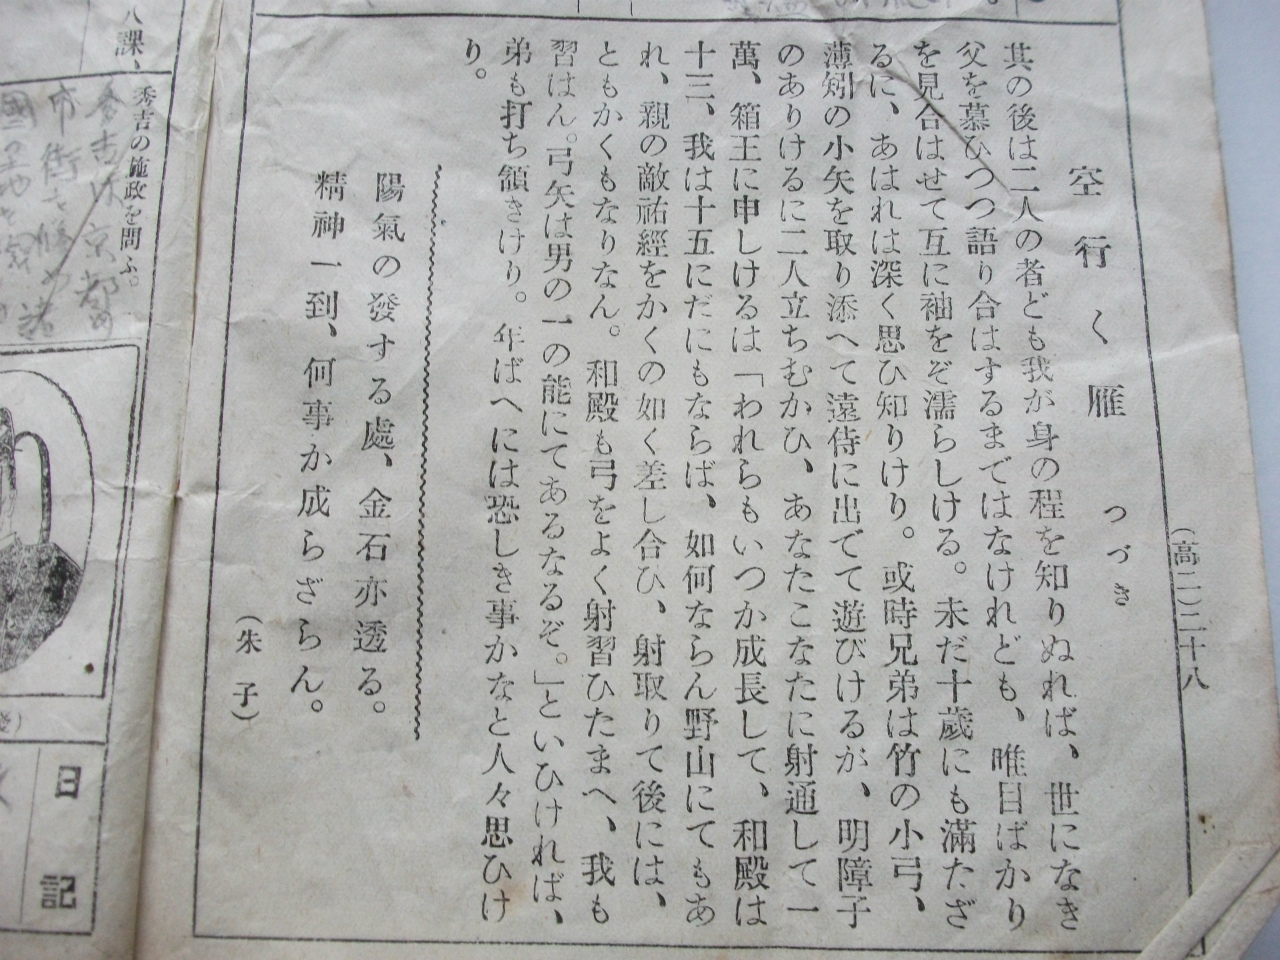 (高二)二十八
空行く雁 つづき
其の後は二人の者ども我が身の程を知りぬれば、世になき
父を慕ひつつ語り合はするまではなけれども、唯目ばかり
を見合はせて互に袖をぞ濡らしける。未だ十歳にも滿たざ
るに、あはれは深く思ひ知りけり。或時兄弟は竹の小弓、
薄矧の小矢を取り添へて遠侍に出でて遊びけるが、明障子
のありけるに二人立ちむかひ、あなたこなたに射通して一
萬、箱王に申しけるは「われらもいつか成長して、和殿は
十三、我は十五にだにもならば、如何ならん野山にてもあ
れ、親の敵祐經をかくの如く差し合ひ、射取りて後には、
ともかくもなりなん。和殿も弓をよく射習ひたまへ、我も
習はん。弓矢は男の一の能にてあるなるぞ。」といひければ、
弟も打ち領きけり。年ばへには恐しき事かなと人々思ひけ
り。
陽氣の發する處、金石亦透る。
精神一到、何事か成らざらん。
(朱子)
八課、
秀吉の施政を問ふ。
日記